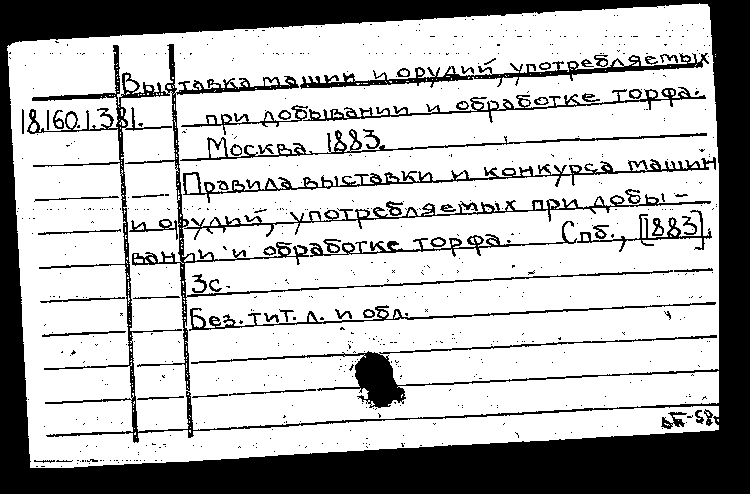 Выставка машин и орудий, употребляемых
18.160.1.381. при добывании и обработке торфа.
Москва. 1883.
Правила выставки и конкурса машин
и орудий, употребляемых при добы-
вании и обработке торфа. Спб., [1883].
3с.
Без. тит. л. и обл.